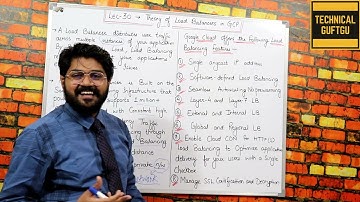 TECHNICAL
GUFTGU
LEC-30 → Theory of Load Balancers in GCP
* A Load Balancer distributes user traffic
across multiple instances of your application
Load, Load Balancing
your applications
is Built on the
Infrastructure that
supports 1 million+
with Consistent high
Traffic
through
Balancing
instance
Google Cloud offers the following Load
Balancing Features :-
① Single anycast IP address
② Software defined Load Balancing
③ Seamless Autoscaling
④ Layer-4 and Layer-7 LB
⑤ External and Internal LB
⑥ Global and Regional LB
⑦ Enable Cloud CDN for HTTP(s)
Load Balancing to Optimize application
delivery for your users with a Single
Checkbox
⑧ Manage SSL Certificates and Decryption